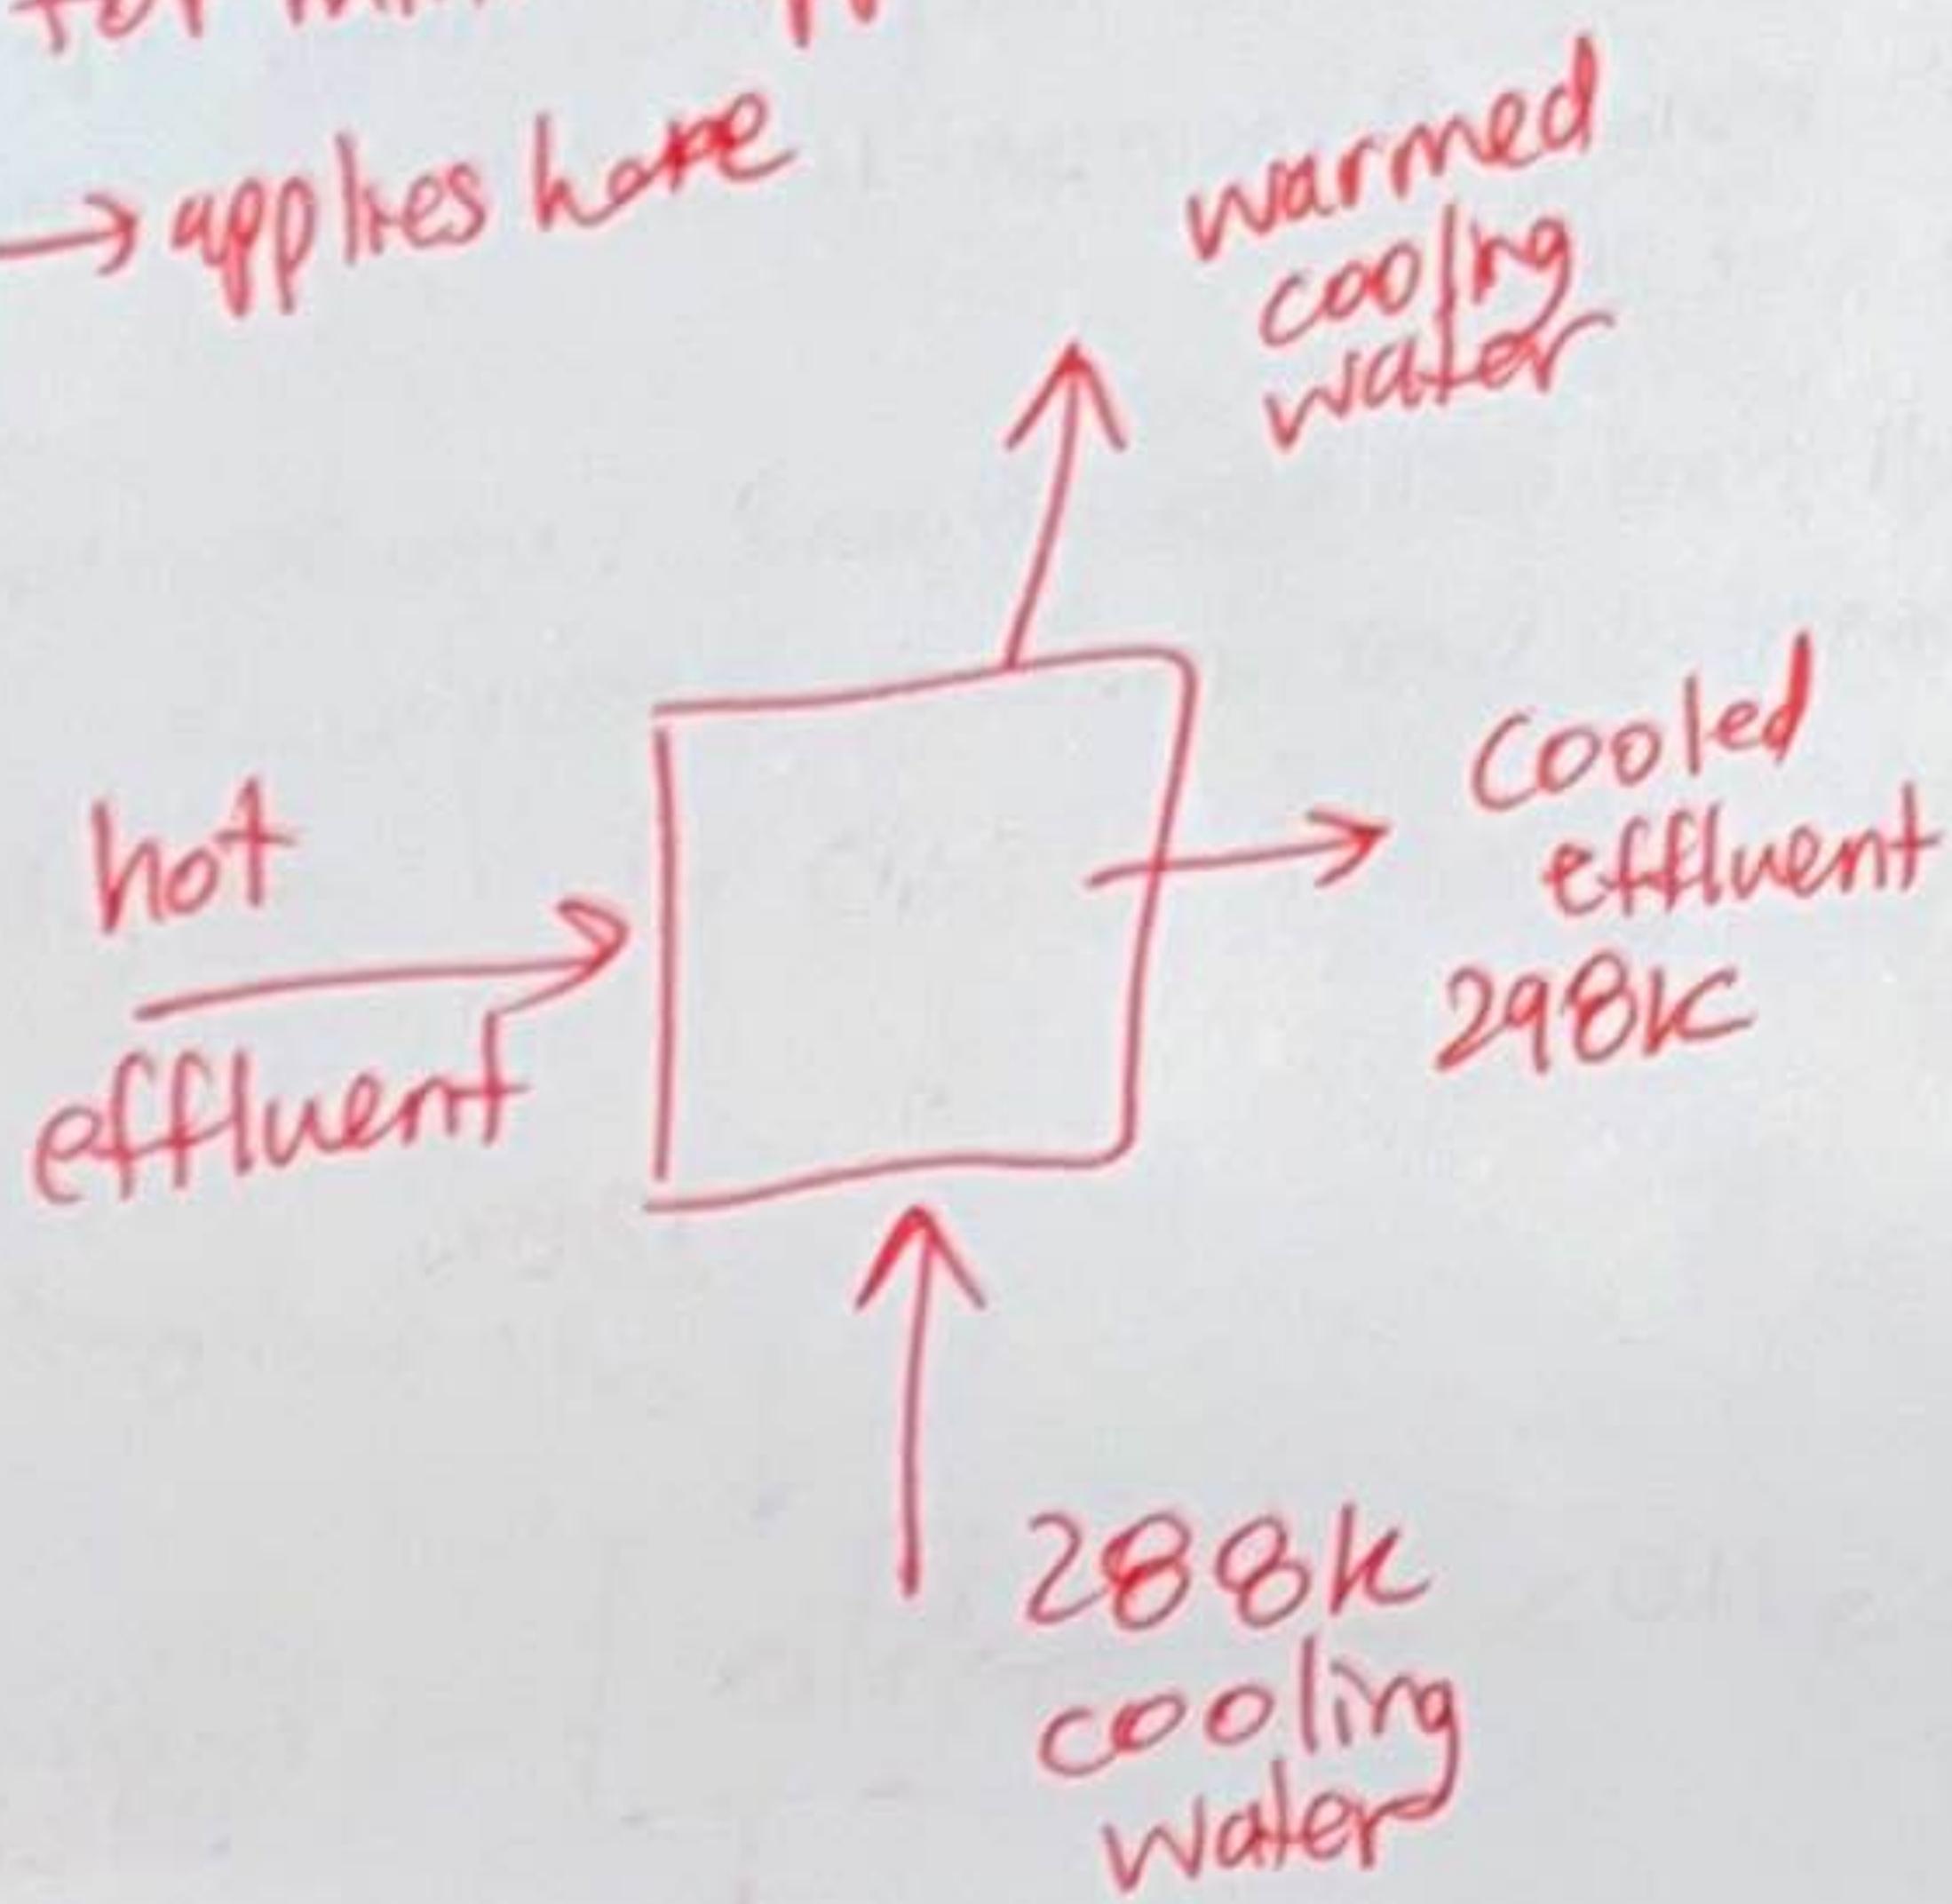 for
→ applies here
warmed
cooling
water
hot
effluent
Cooled
effluent
298K
288K
cooling
water